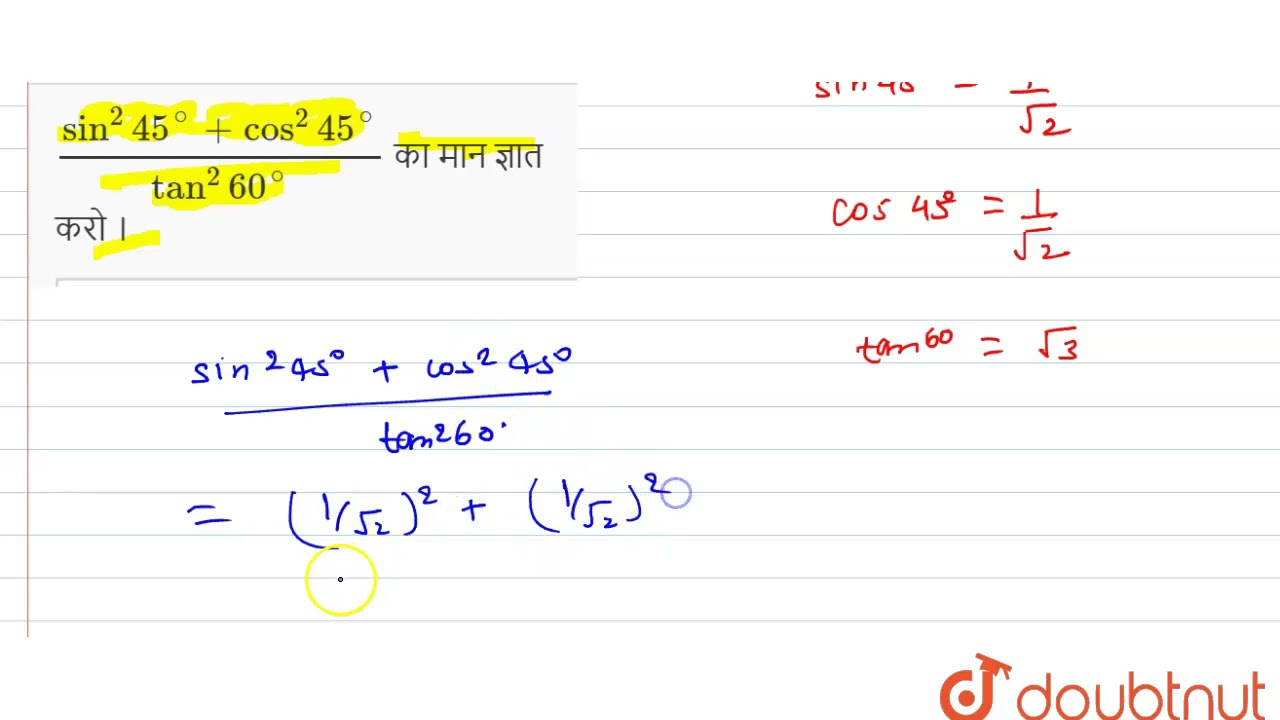 sin² 45° + cos² 45°
tan² 60°
का मान ज्ञात
करो ।
sin 45 = 1
√2
cos 45° = 1
√2
tan 60 = √3
sin² 45° + cos² 45°
tan² 60°
= (1/√2)² + (1/√2)²
doubtnut